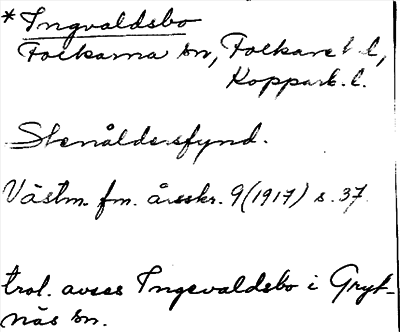 * Ingvaldsbo
Folkärna sn, Folkare h d,
Kopparb. l.
Stenåldersfynd.
Västm. fm. årsskr. 9 (1917) s. 37.
trol. avses Ingevaldsbo i Gryt-
näs sn.